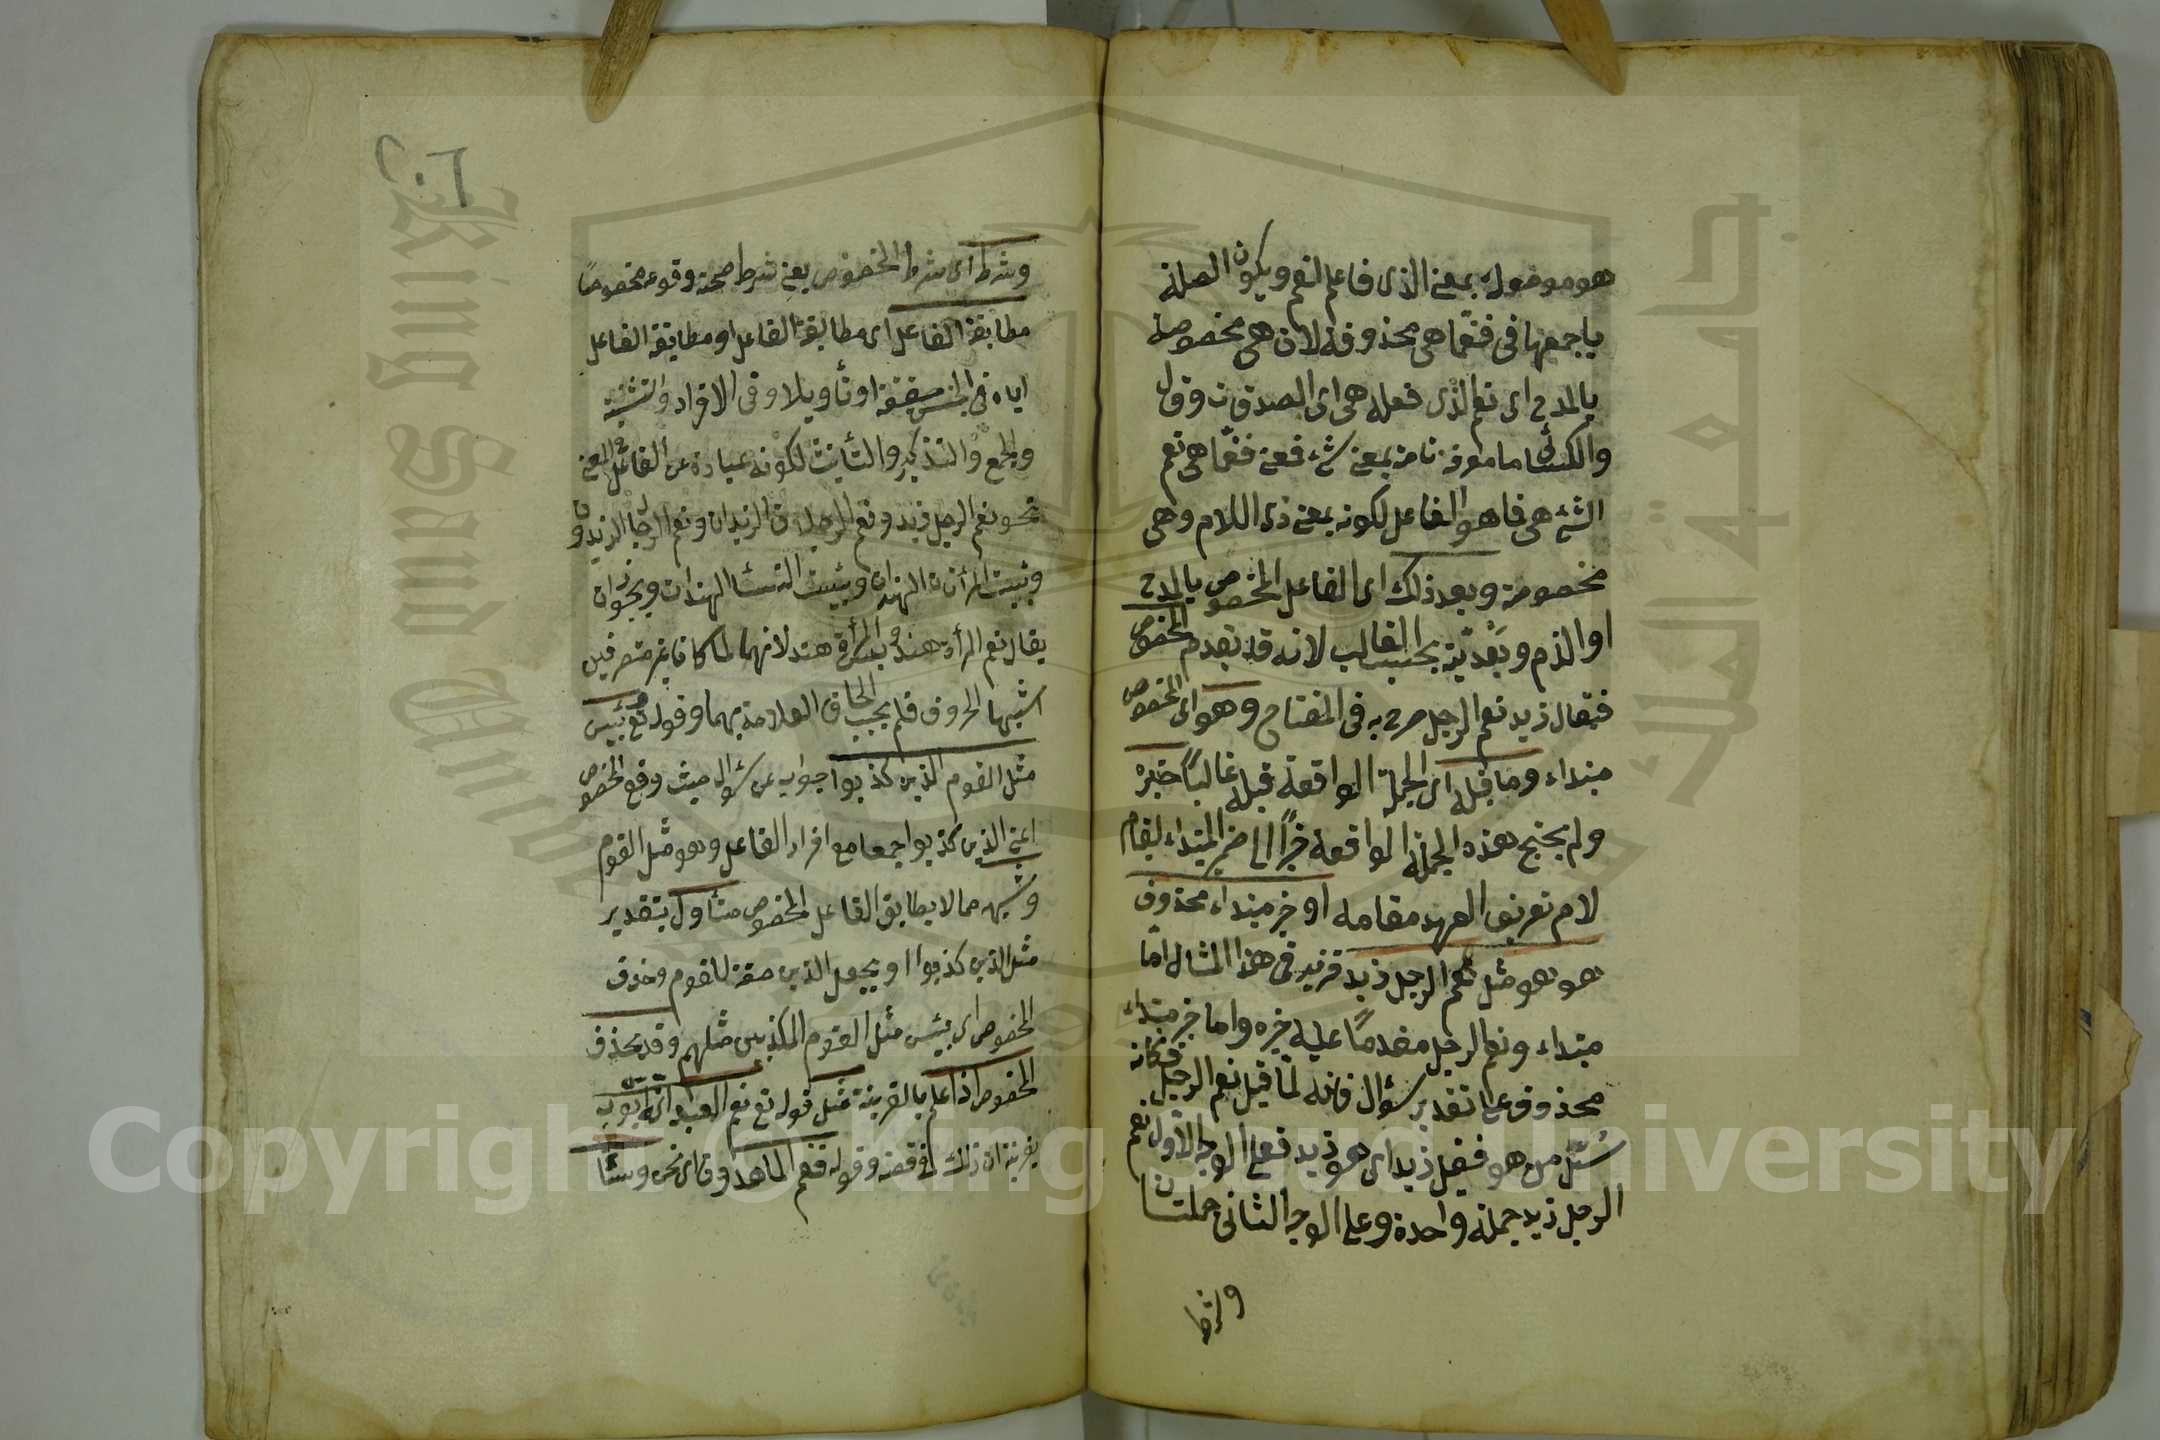 هو موصولة بمعنى الذى فاعل لنعم ويكون الصلة
باجمعها فى فنعما هى محذوفة لان هى مخصوصة
بالمدح اى نعم الذى فعله هى اى الصدقات وقال
والكسائى ما معرفة تامة بمعنى شئ فمعنى فنعما هى نعم
الشئ هى فما هو الفاعل لكونه بمعنى ذى اللام وهى
مخصوصة وبعد ذلك اى الفاعل المخصوص بالمدح
او الذم وبعديته بحسب الغالب لانه قد يتقدم المخصوص
فيقال زيد نعم الرجل صرح به فى المفتاح وهو اى المخصوص
مبتداء وما قبله اى الجملة الواقعة قبله غالبا خبره
ولم يحتج هذه الجملة الواقعة خبرا الى ضمير المبتداء لقيام
لام تعريف العهد مقامه او خبر مبتداء محذوف
هو هو مثل نعم الرجل زيد فزيد فى هذا المثال اما
مبتداء ونعم الرجل مقدما عليه خبره واما خبر مبتداء
محذوف على تقدير سؤال فانه لما قيل نعم الرجل فكانه
سئل من هو فقيل زيد اى هو زيد فعلى الوجه الاول نعم
الرجل زيد جملة واحدة وعلى الوجه الثانى جملتان
وشرط
٢٠٦
وشرط اى شرط المخصوص يعنى شرط صحة وقوعه مخصوصا
مطابقة الفاعل اى مطابقة الفاعل او مطابقة الفاعل
اياه فى الجنس حقيقة او تأويلا وفى الافراد والتثنية
والجمع والتذكير والتأنيث لكونه عبارة عن الفاعل فى المعنى
نحو نعم الرجل زيد ونعم الرجلان الزيدان ونعم الرجال الزيدون
وبئست المرأتان الهندان وبئست النساء الهندات ويجوز ان
يقال نعم المرأة هند وبئس المرأة هند لانهما لما كانا غير متصرفين
اشبها الحروف فلم يجب الحاق العلامة بهما وقوله تع وبئس
مثل القوم الذين كذبوا جواب عن سؤال حيث وقع المخصوص
اعنى الذين كذبوا جمعا مع افراد الفاعل وهو مثل القوم
وشبهه مما لا يطابق الفاعل المخصوص متأول بتقدير
مثل الذين كذبوا او يجعل الذين صفة للقوم وحذف
المخصوص اى بئس مثل القوم المكذبين مثلهم وقد يحذف
المخصوص اذا علم بالقرينة مثل قوله تع نعم العبد اى ايوب
بقرينة ان ذلك فى قصته وقوله فنعم الماهدون اى نحن وساء